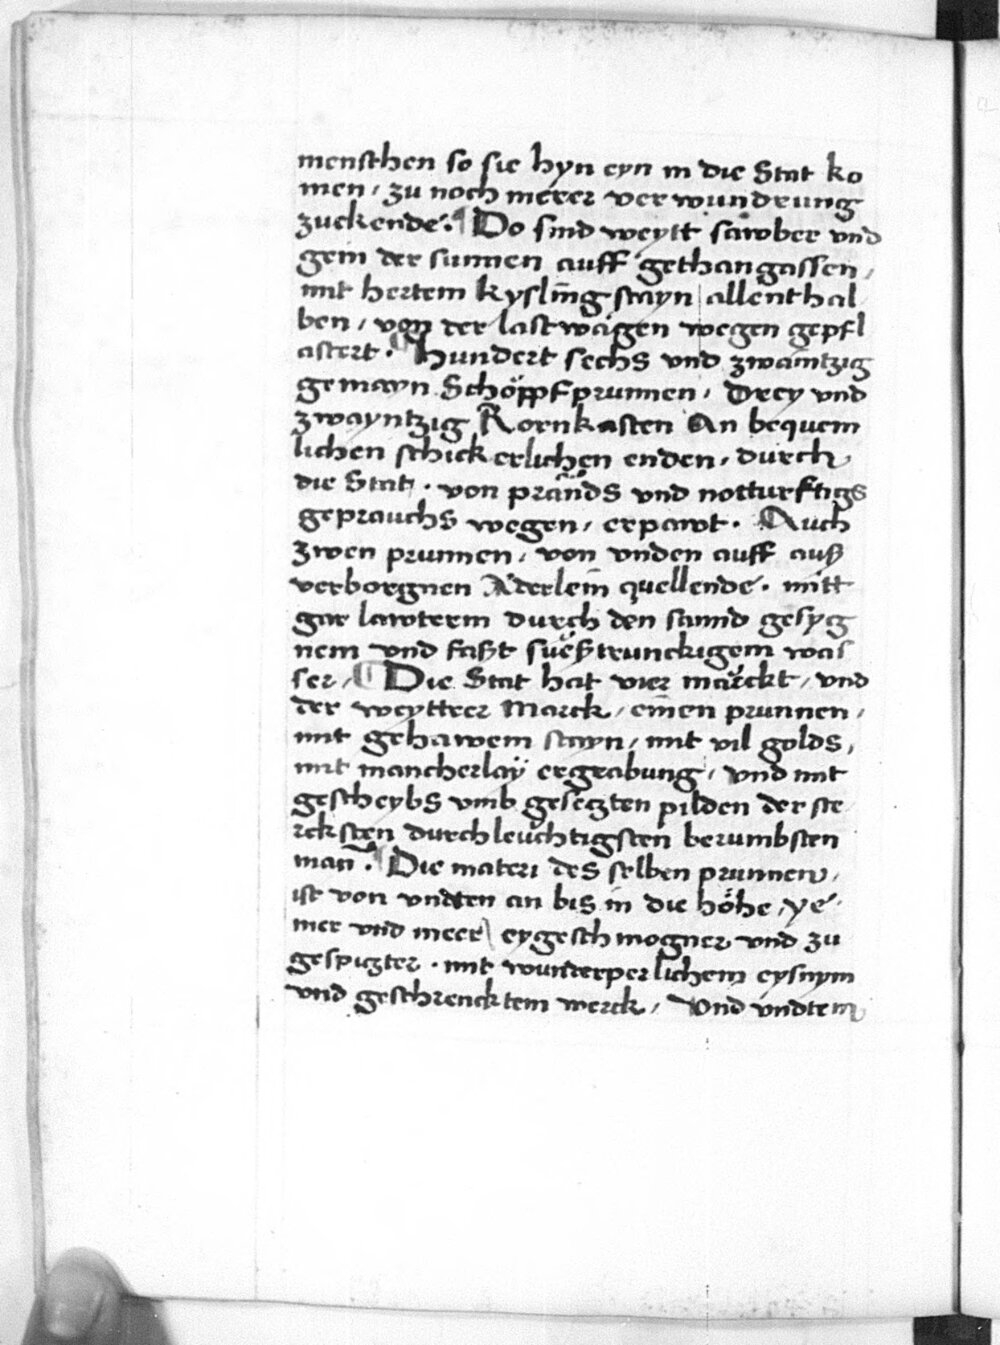 menschen so sie hyn eyn in die Stat ko
men / zu noch merer verwundrung
zuckende. ¶ Do sind weytt sawber vnd
gein der sunnen auff gethan gassen /
mit hertem kysling stayn allenthal
ben / von der lastwägen wegen gepfl
astert. ¶ Hundert sechs vnd zwaintzig
gemayn Schöpfprunnen / Drey vnd
zwayntzig Kornkasten An bequem
lichen schickerlichen enden / durch
die Stat . von prands vnd notturftigs
geprauchs wegen / erpawt . Auch
zwen prunnen / von vnden auff auß
verborgnen Äderlein quellende . mitt
gar lawterm durch den sannd gesyg
nem vnd faßt süeßtrunckigem was
ser / ¶ Die Stat hat vier märckt / vnd
der weytteer Marck / einen prunnen /
mit gehawem stayn / mit vil golds /
mit mancherlaÿ ergrabung / vnd mit
gescheybs vmb gesetzten pilden der ste
rcksten durchleüchtigsten berumbsten
man . ¶ Die materi des selben prunnen /
ist von vndten an bis in die höhe / ye
mer vnd meer eygeschmogner vnd zu
gespitzter . mit wunderperlichem eysnym
vnd geschrencktem werck / Vnd vndtem